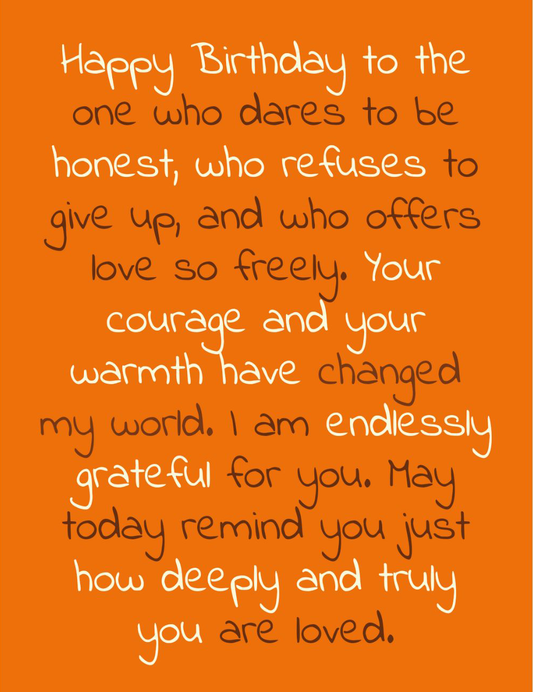 Happy Birthday to the
one who dares to be
honest, who refuses to
give up, and who offers
love so freely. Your
courage and your
warmth have changed
my world. I am endlessly
grateful for you. May
today remind you just
how deeply and truly
you are loved.